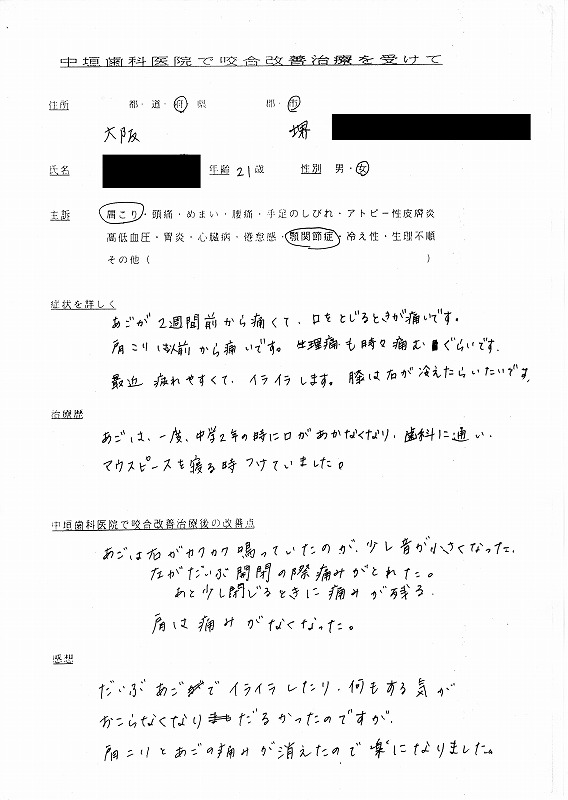 中垣歯科医院で咬合改善治療を受けて
住所 都・道・府・県 郡・市
大阪 堺
氏名 年齢 21歳 性別 男・女
主訴 肩こり・頭痛・めまい・腰痛・手足のしびれ・アトピー性皮膚炎
高低血圧・胃炎・心臓病・倦怠感・顎関節症・冷え性・生理不順
その他( )
症状を詳しく
あごが2週間前から痛くて、口をとじるときが痛いです。
肩こりは以前から痛いです。生理痛も時々痛むぐらいです。
最近 疲れやすくて、イライラします。膝は右が冷えたらいたいです。
治療歴
あごは、一度、中学2年の時に口があかなくなり、歯科に通い、
マウスピースを寝る時つけていました。
中垣歯科医院で咬合改善治療後の改善点
あごは右がカクカク鳴っていたのが、少し音が小さくなった。
左がだいぶ開閉の際痛みがとれた。
あと少し閉じるときに痛みが残る。
肩は痛みがなくなった。
感想
だいぶあごでイライラしたり、何もする気が
おこらなくなりだるかったのですが、
肩こりとあごの痛みが消えたので楽になりました。